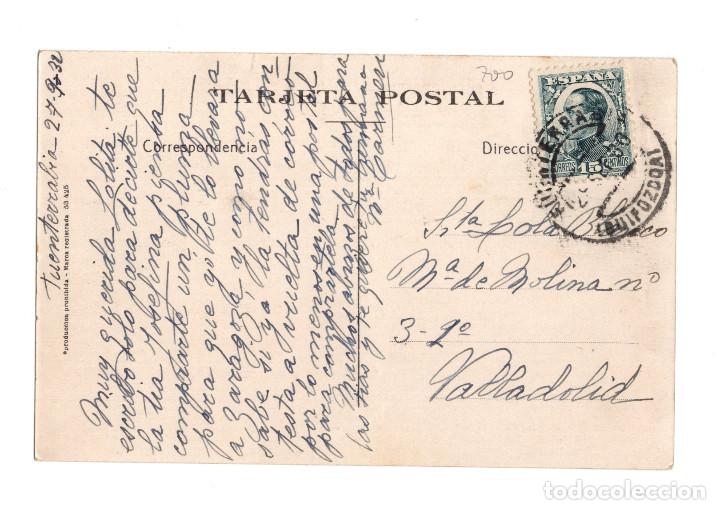 700
TARJETA POSTAL
Correspondencia
Direcció
ESPAÑA
CORREOS 15 CENTIMOS
FUENTERRABIA
(GUIPUZCOA)
Fuenterrabia 27-9-32
Muy querida Lolita: te
escribo solo para decirte que
la tia Josefina piensa
comprarte un pluma
para que yo te lo lleva
a Zaragoza y como no
sabe si ya la tendrás con-
testa a vuelta de correo
por lo menos en una postal
para comprartela
Muchos abrazos de todos para
las tias y te quiere tu
Mª Carmen
Srta Lola
Mª de Molina nº
3-2º
Valladolid
*produccion prohibida - Marca registrada 53 425
todocoleccion.net